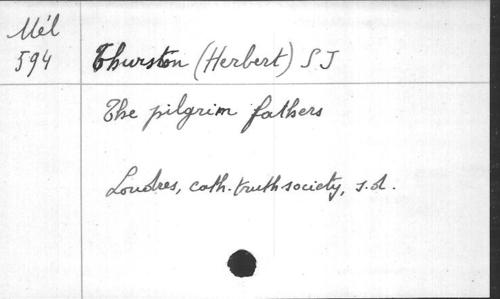 Mél
594
Thurston (Herbert) S J
The pilgrim fathers
Londres, cath. truth society, s.d.